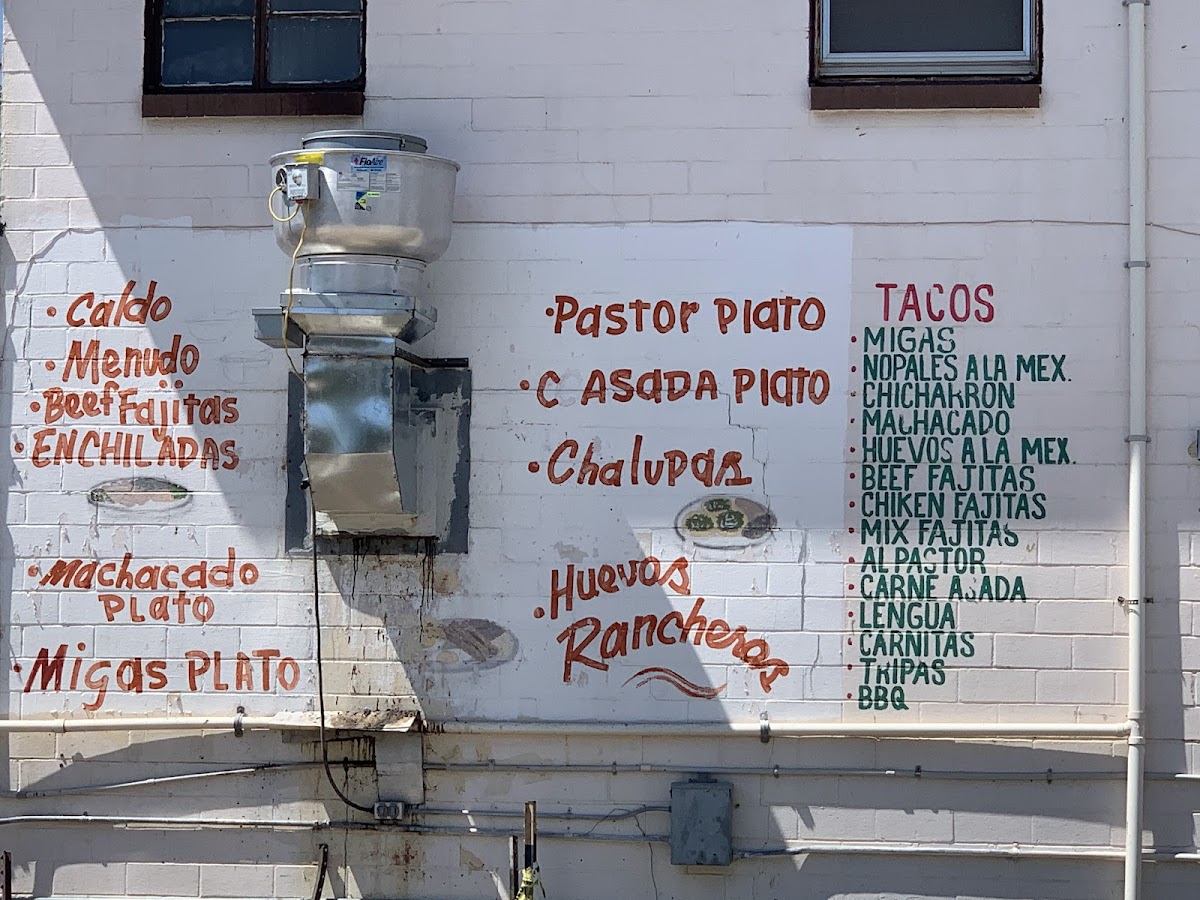 FloAire
• Caldo
• Menudo
• Beef Fajitas
• ENCHILADAS
• Machacado
PLATO
• Migas PLATO
• Pastor PLATO
• C ASADA PLATO
• Chalupas
• Huevos
Rancheros
TACOS
• MIGAS
• NOPALES A LA MEX.
• CHICHARRON
• MACHACADO
• HUEVOS A LA MEX.
• BEEF FAJITAS
• CHIKEN FAJITAS
• MIX FAJITAS
• AL PASTOR
• CARNE ASADA
• LENGUA
• CARNITAS
• TRIPAS
• BBQ